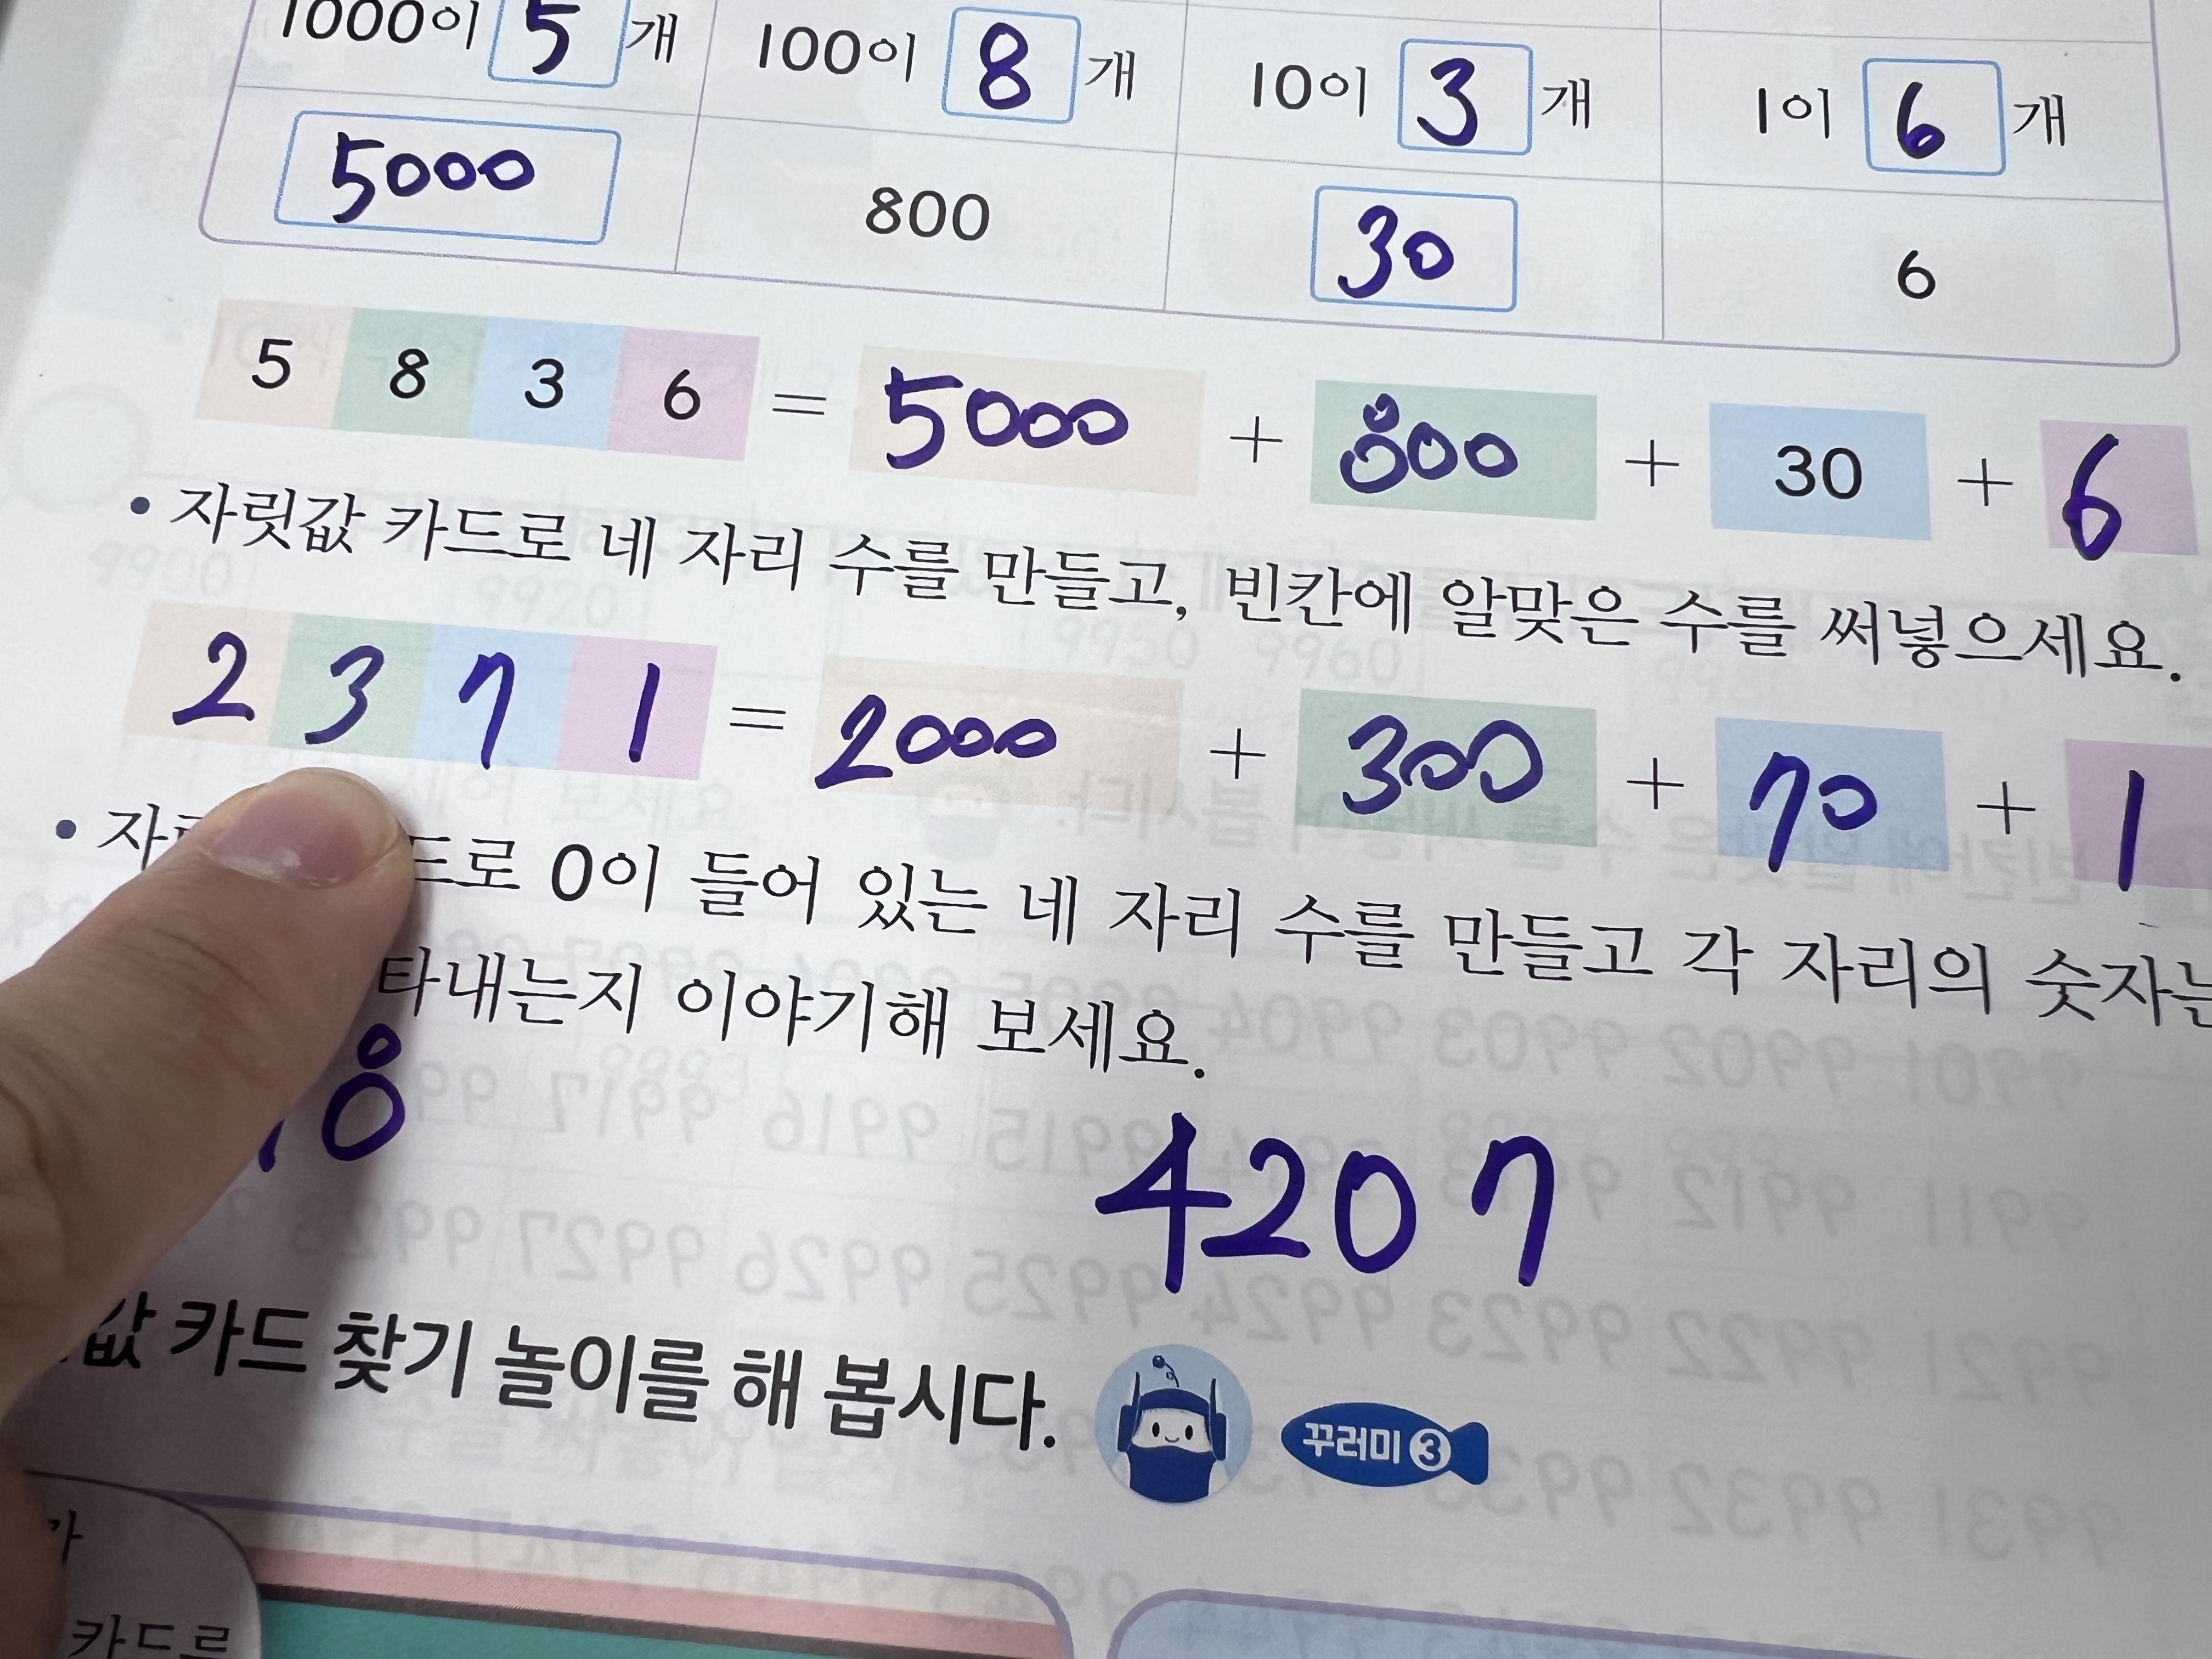 1000이 5 개 100이 8 개 10이 3 개 1이 6 개
5000 800 30 6
5 8 3 6 = 5000 + 800 + 30 + 6
• 자릿값 카드로 네 자리 수를 만들고, 빈칸에 알맞은 수를 써넣으세요.
2 3 7 1 = 2000 + 300 + 70 + 1
드로 0이 들어 있는 네 자리 수를 만들고 각 자리의 숫자는
타내는지 이야기해 보세요.
8 4207
값 카드 찾기 놀이를 해 봅시다. 꾸러미 3
카드로